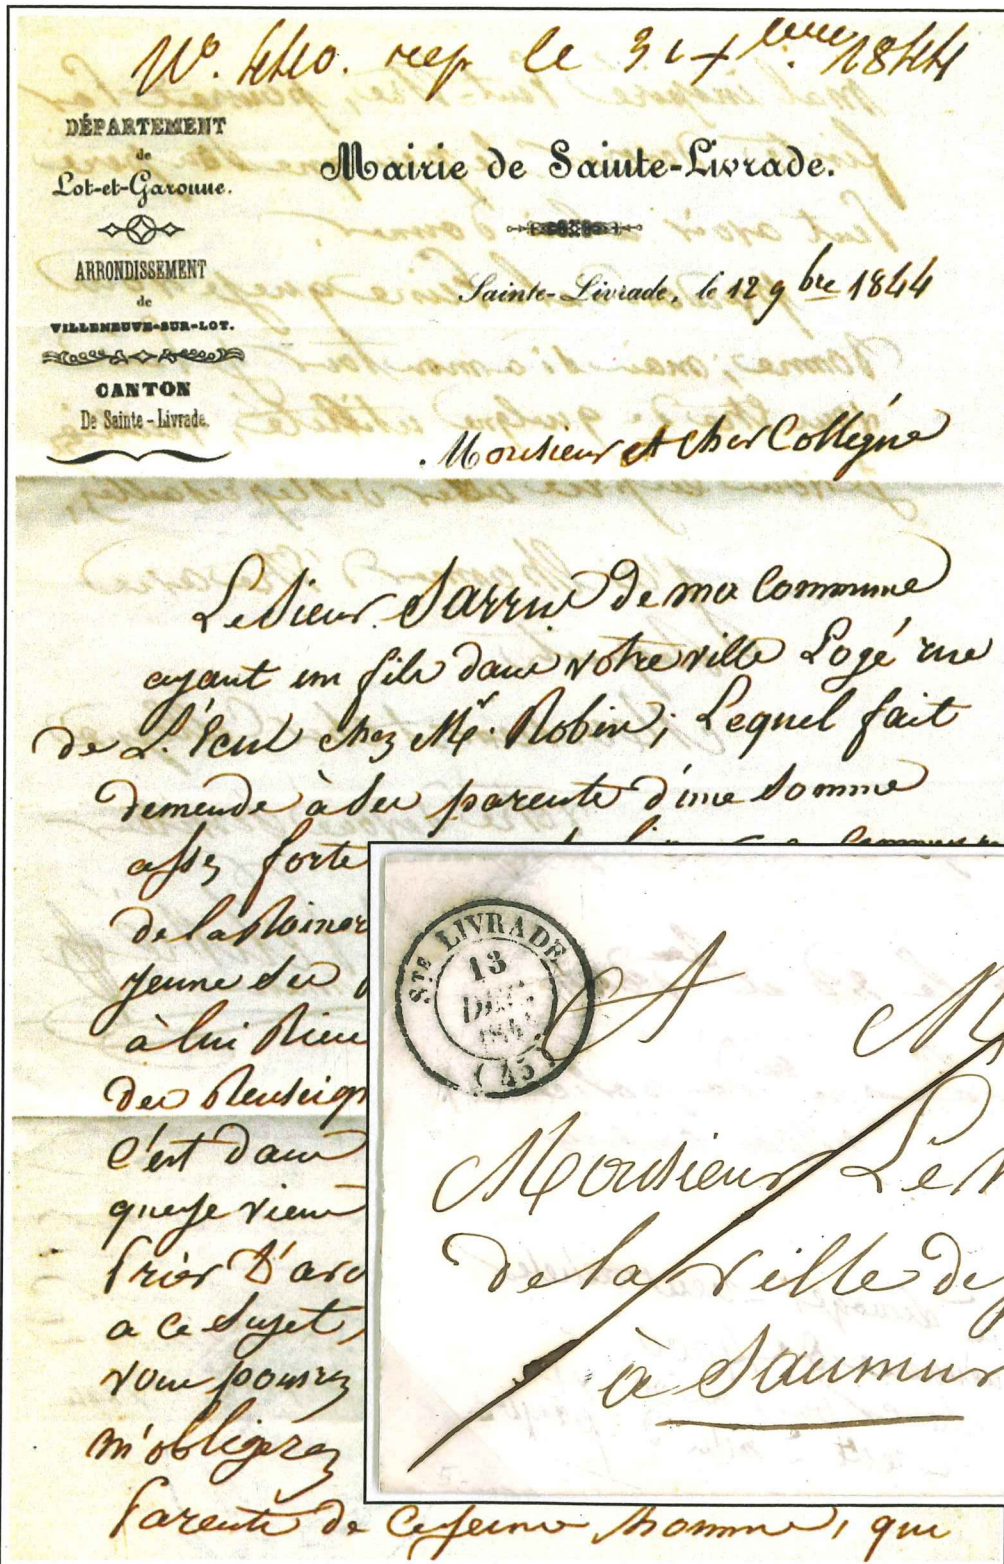 N°. 440. rep le 31 Xbre. 1844
DÉPARTEMENT
de
Lot-et-Garonne.
ARRONDISSEMENT
de
VILLENEUVE-SUR-LOT.
CANTON
De Sainte-Livrade.
Mairie de Sainte-Livrade.
Sainte-Livrade, le 12 9bre 1844
Monsieur et cher Collègue
Le Sieur Sarrus de ma Commune
ayant un fils dans votre ville Logé rue
de L'Écul chez Mr. Robin; Lequel fait
demende à ses parents d'une somme
assez forte
de la
jeune
à lui
des Renseign
c'est dans
que je viens
prier D'avo
a ce Sujet,
vous pourrez
m'obligerez
Parents de ce jeune homme, qui
STE LIVRADE
13
DEC
184
(45)
A M
Monsieur Le M
de la ville de
à Saumur